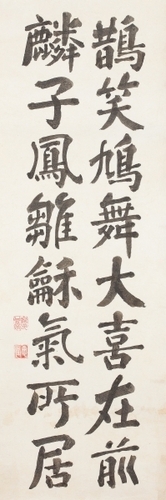 鵲笑鳩舞大喜在前
麟子鳳雛龢氣所居